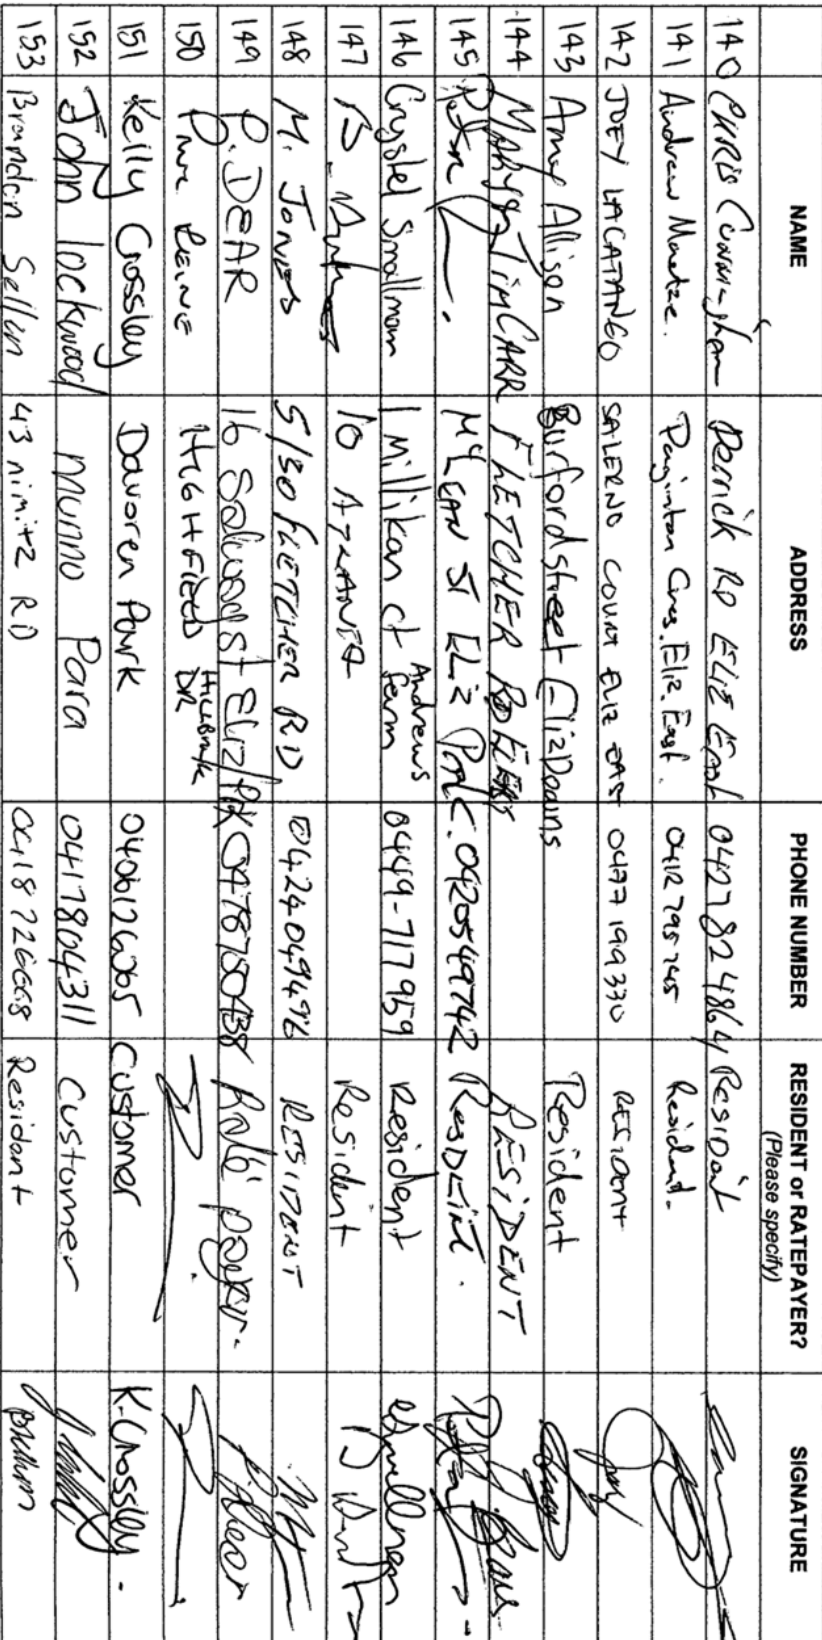 NAME ADDRESS PHONE NUMBER RESIDENT or RATEPAYER? (Please specify) SIGNATURE
140 CHRIS Cunningham Derrick RD ELIZ East 0427824864 Resident
141 Andrew Paginton Cres. Eliz. East. 0412795745 Resident.
142 JOEY LACATANGO SALERNO COURT ELIZ EAST 0477 199330 RESIDENT Joey
143 Amy Allison Burford street Eliz Downs Resident
144 TIM CARR FLETCHER RD RESIDENT
145 McLEAN St ELiz 0420549742
146 Crystel Smallman 1 Millikan ct Andrews Farm 0449-717959 Resident
147 10 Resident
148 M. JONES 5/30 FLETCHER RD 0424049496 RESIDENT
149 P. DEAR 16 St Eliz/PK Rate payer. P. Dear
150 HIGHFIELD DR
151 Kelly Crossley Davoren Park Customer K. Crossley.
152 John lockwood Munno Para 0417804311 Customer
153 Brandon 43 nimitz RD 0418726668 Resident